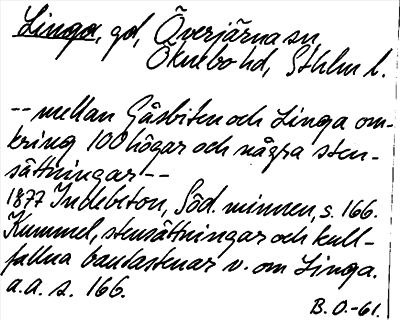 Linga, gd, Överjärna sn,
Öknebo hd, Sthlm l.
-- mellan Gåsbiten och Linga om-
kring 100 högar och några sten-
sättningar --
1877 Indebetou, Söd. minnen, s. 166.
Kummel, stensättningar och kull-
fallna bautastenar v. om Linga.
a.a. s. 166.
B.O.-61.